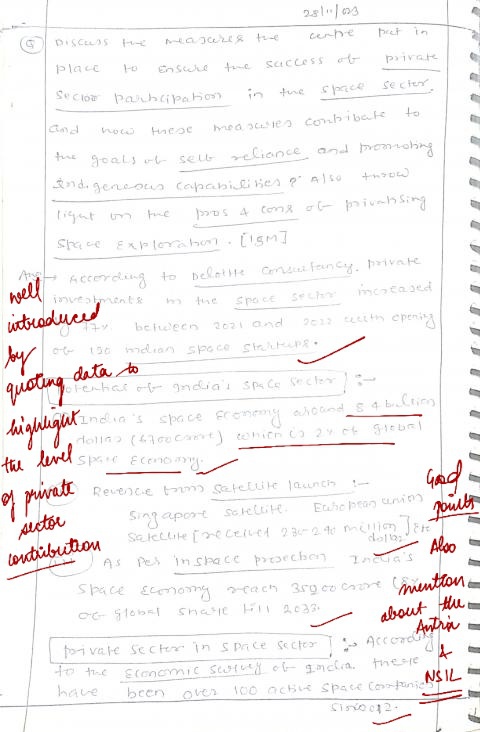 28/11/23
Q Discuss the measures the centre put in
place to ensure the success of private
sector participation in the space sector.
and how these measures contribute to
the goals of self reliance and promoting
indigeneous capabilities? Also throw
light on the pros & cons of privatising
space exploration. [15M]
Ans → According to Deloitte Consultancy, private
investments in the space sector increased
by 77% between 2021 and 2022 with opening
of 150 indian space startups.
Potential of India's space sector :-
India's space economy around
dollar which is 2% of global
space economy.
Revenue from satellite launch :-
Singapore satellite. European union
satellite [received million]
As per inspace projection India's
space economy reach 35000 crore
of global share till 2033.
private sector in space sector :- According
to the economic survey of India there
have been over 100 active space companies
since 2012.
well
introduced
by
quoting data to
highlight
the level
of private
sector
contribution
Good
points
Also
mention
about the
Antrix
&
NSIL